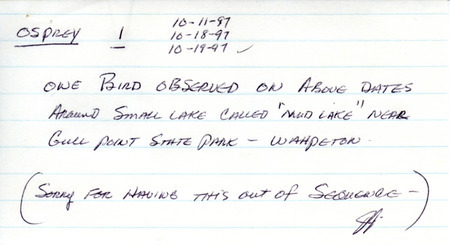 OSPREY 1 10-11-97
10-18-97
10-19-97 ✓
ONE BIRD OBSERVED ON ABOVE DATES
AROUND SMALL LAKE CALLED "MUD LAKE" NEAR
GULL POINT STATE PARK - WAHPETON.
(SORRY FOR HAVING THIS OUT OF SEQUENCE -
)